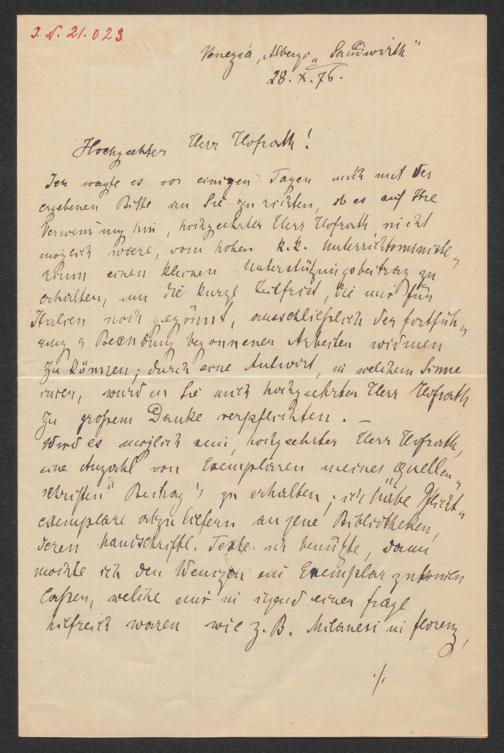 J. N. 21.023
Venezia, Albergo „Sandwirth“
28. X. 76.
Hochgeehrter Herr Hofrath!
Ich wagte es vor einigen Tagen mich mit der
ergebenen Bitte an Sie zu richten, ob es auf Ihre
Verwendung hin, hochgeehrter Herr Hofrath, nicht
möglich wäre, vom hohen k.k. Unterrichtsministe„
rium einen kleinen Unterstützungsbeitrag zu
erhalten, um die kurze Zeitfrist, die mir für
Italien noch gegönnt, ausschließlich der Fortfüh„
ung u Beendung begonnenen Arbeiten widmen
zu können; durch eine Antwort, in welchem Sinne
immer, würden Sie mich hochgeehrter Herr Hofrath
zu großem Danke verpflichten. —
Wird es möglich sein, hochgeehrter Herr Hofrath,
eine Anzahl von Exemplaren meines „Quellen„
schriften“ Beitrag's zu erhalten; ich habe Pflicht„
exemplare abzuliefern an jene Bibliotheken,
deren handschriftl. Texte ich benützte, dann
möchte ich den Wenigen ein Exemplar zukommen
laßen, welche mir in irgend einer Frage
hilfreich waren wie z. B. Milanesi in Florenz,
./.